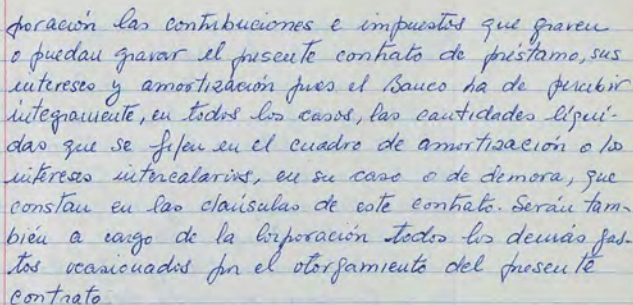 poración las contribuciones e impuestos que graven
o puedan gravar el presente contrato de préstamo, sus
intereses y amortización pues el Banco ha de percibir
integramente, en todos los casos, las cantidades liqui-
das que se fijen en el cuadro de amortización o los
intereses intercalarios, en su caso o de demora, que
constan en las claúsulas de este contrato. Serán tam-
bién a cargo de la Corporación todos los demás gas-
tos ocasionados por el otorgamiento del presente
contrato